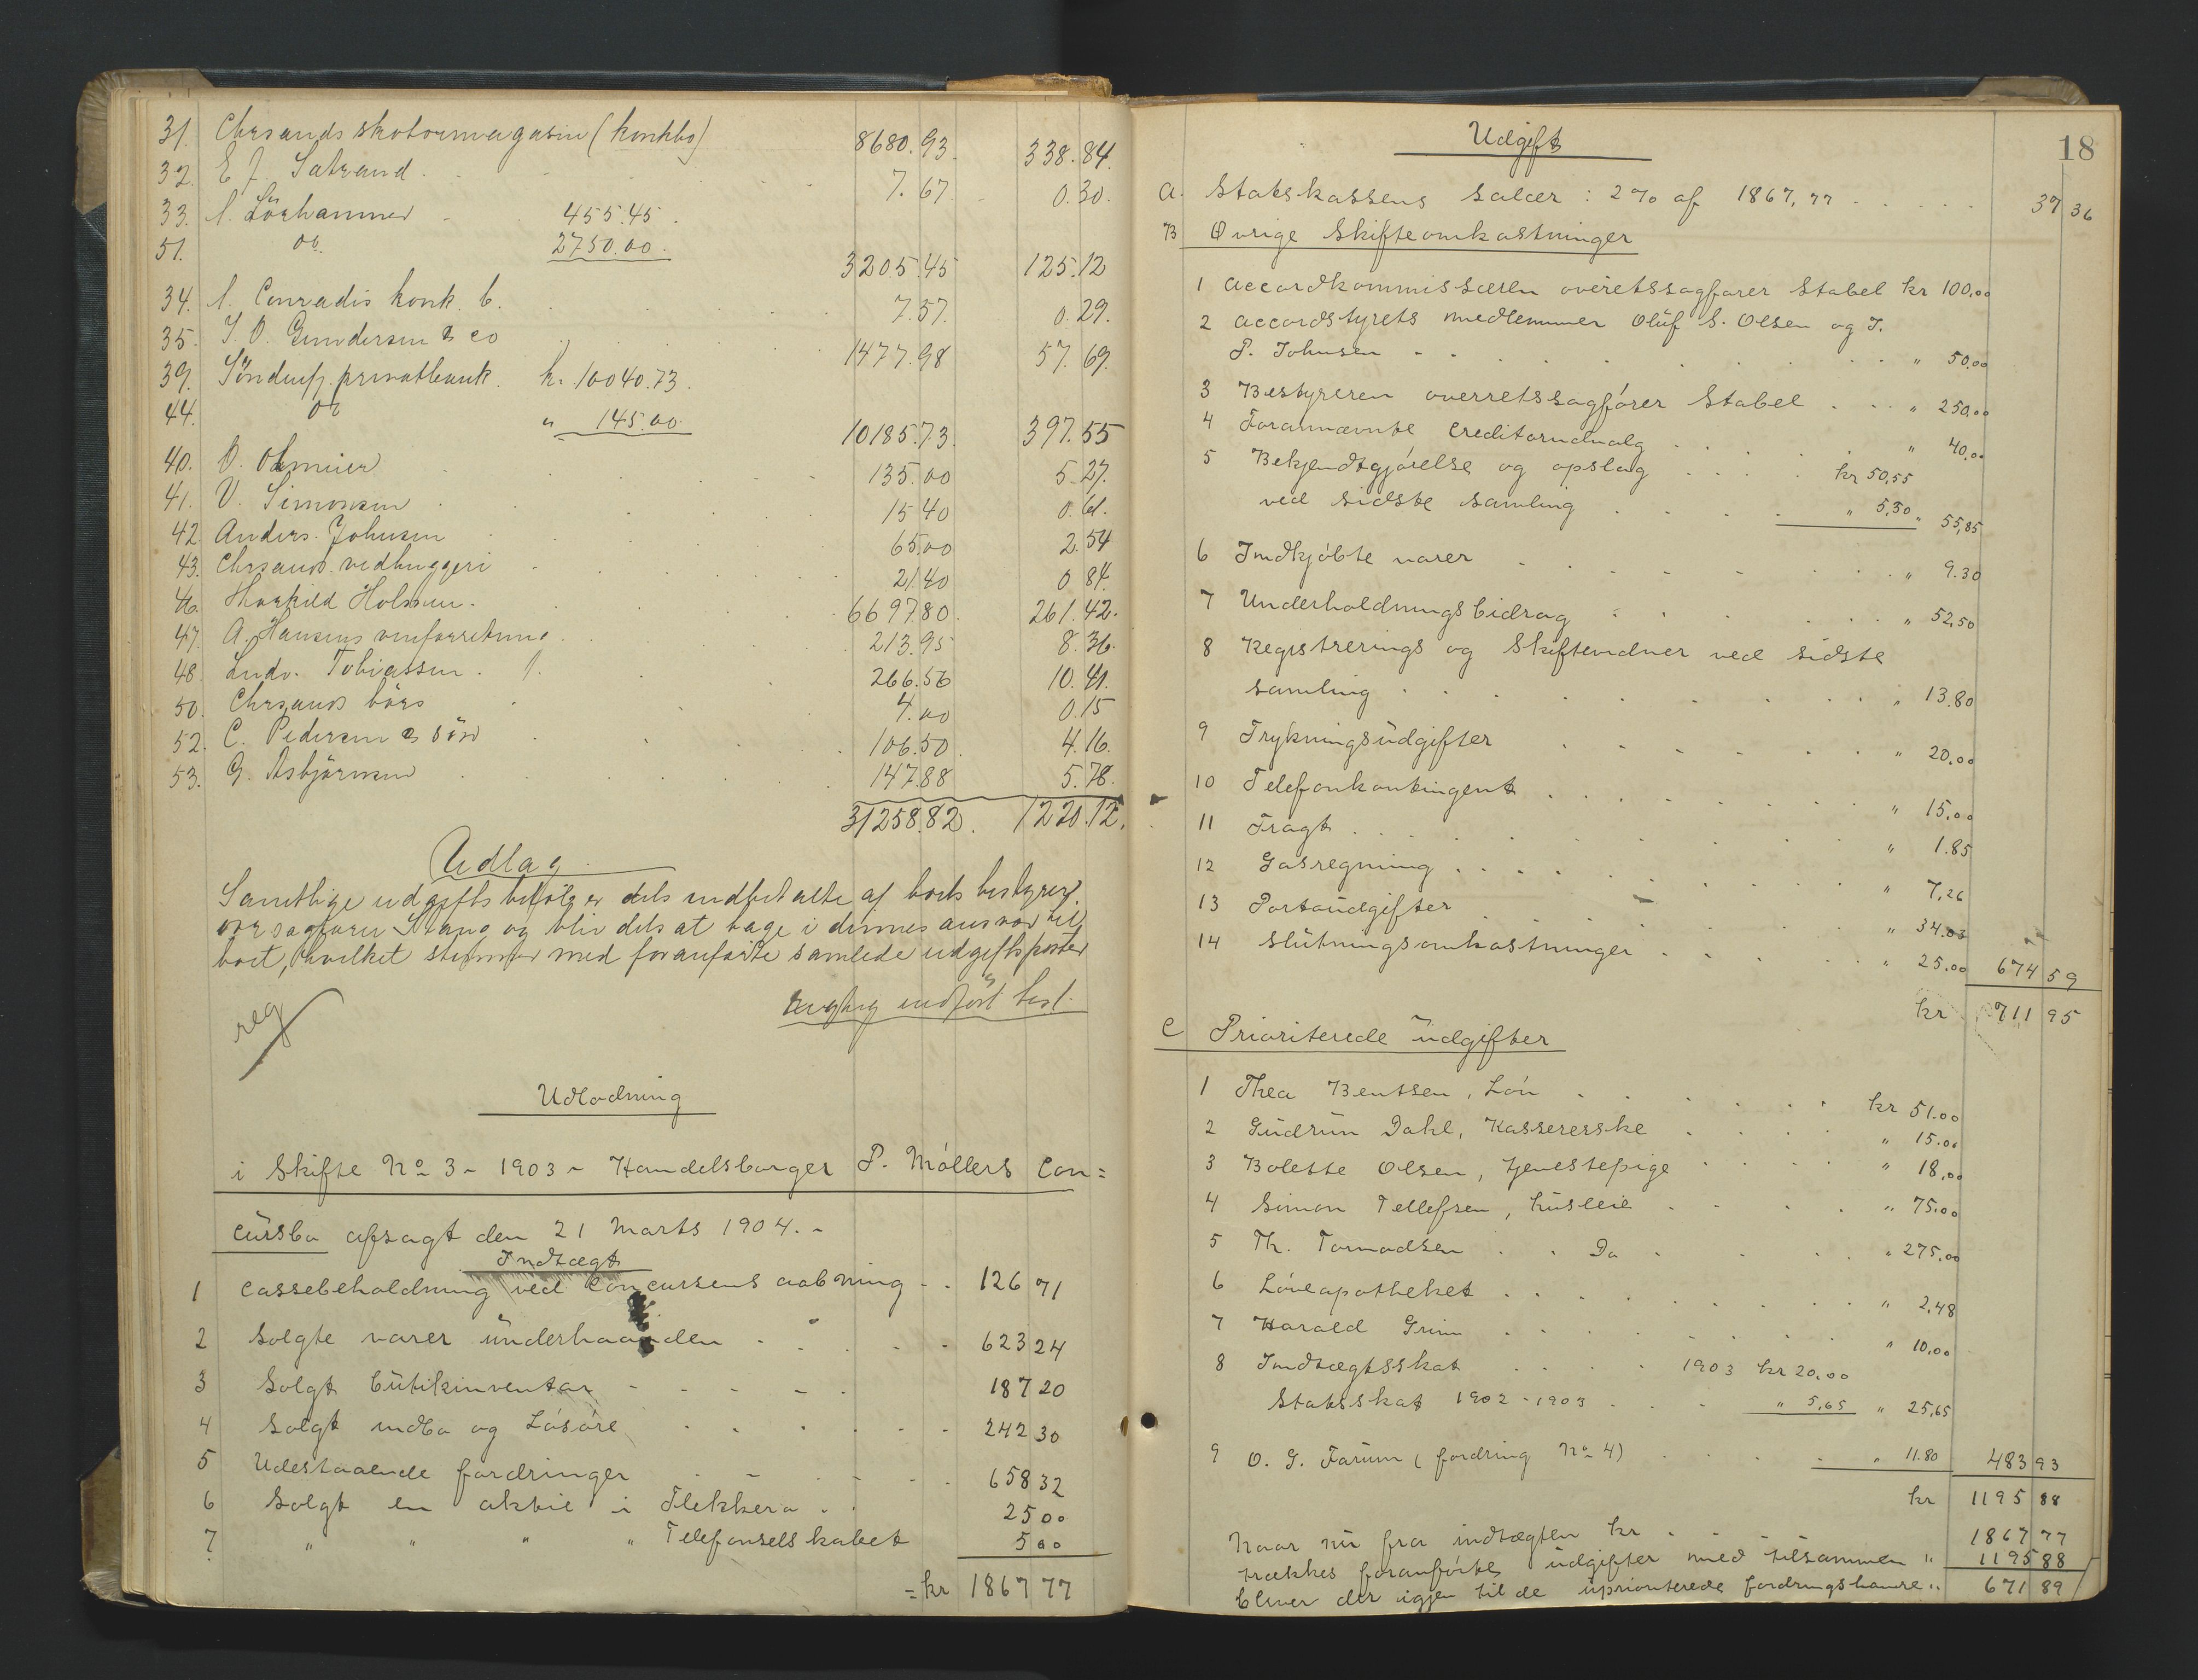 31. Chrsands skotöimagasin (konkbo) 8680.93. 338.84.
32. E J. Satrand . 7.67 0.30.
33. A. Lörhammer 455.45.
51. do. 2750.00. 3205.45 125.12
34. A. Conradis konk. b. 7.57. 0.29.
35. J. O. Gundersen & co 1477.98 57.69.
39. Sönderfj. privatbank. kr. 10040.73.
44. do " 145.00. 10185.73. 397.55
40. O. Olsmeier 135.00 5.27.
41. V. Simonsen 15.40 0.61.
42. Anders Johnsen 65.00 2.54
43. Chrsands vedhuggeri 21.40 0.84.
46. Thorkild Holmsen. 6697.80. 261.42.
47. A. Hansens vinforretning. 213.95 8.36.
48. Ludv. Tobiassen. 266.56 10.41.
50. Chrsands börs 4.00 0.15
52. C. Pedersen & sön 106.50. 4.16.
53. G. Asbjörnsen 147.88 5.78.
31258.82. 1220.12.
Udlag
Samtlige udgifts beløb er dels indbetalte af boets bestyrer,
ovrsagfører Stang og blir dels at tage i dennes ansvar til
boet, hvilket stemmer med foranførte samlede udgiftsposter
indført
reg
Udlodning
i Skifte No 3 - 1903 - Handelsborger P. Møllers Con=
cursbo afsagt den 21 Marts 1904. -
Indtægt
1 Cassebeholdning ved Concursens aabning - . 126 71
2 Solgte varer underhaanden . . . . . 623 24
3 Solgt butikinventar - - - - . 187 20
4 Solgt indbo og Løsøre . . . . . 242 30
5 Udestaaende fordringer . . . . 658 32
6 Solgt en aktie i Flekkerø . . 25 00
7 " " " " Telefonselskabet 5 00
= kr 1867 77
18
Udgift
a. Statskassens Salær : 2% af 1867,77 . . . . . 37 36
B Øvrige Skifteomkostninger
1 Accordkommissæren overetssagfører Stabel kr 100,00
2 Accordstyrets medlemmer Oluf S. Olsen og J.
P. Johnsen . . . . . . . " 50,00
3 Bestyreren overretssagfører Stabel . . . " 250,00
4 Forannævnte Creditorudvalg . . . . " 40,00
5 Bekjendtgjørelse og opslag . . . . kr 50,55
ved sidste samling . . . . " 5,30 " 55,85
6 Indkjøbte varer . . . . . . . " 9.30
7 Underholdningsbidrag . . . . . . " 52,50
8 Registrerings og Skiftevidner ved sidste
samling . . . . . . . . " 13.80
9 Trykningsudgifter . . . . . . " 20.00
10 Telefonkontingent . . . . . . . " 15,00
11 Fragt . . . . . . . . " 1.85
12 Gasregning . . . . . . . . " 7,26
13 Portoudgifter . . . . . . " 34.03
14 Slutningsomkostninger . . . . . . " 25.00 674 59
kr 711 95
C Prioriterede udgifter
1 Thea Bentsen, Løn . . . . . . kr 51.00
2 Gudrun Dahl, Kassererske . . . . " 15.00
3 Bolette Olsen, tjenestepige . . . . " 18,00
4 Simon Tellefsen, husleie . . . . " 75.00
5 Th. Tormodsen . . Do . . . . " 275.00
6 Løveapotheket . . . . . . . . " 2,48
7 Harald Grim . . . . . . . " 10.00
8 Indtægtsskat . . . . 1903 kr 20,00
Statsskat 1902 - 1903 . . . " 5,65 " 25,65
9 O. G. Farum (fordring No 4) . . . . " 11.80 483 93
kr 1195 88
Naar nu fra indtægten kr . . . . . 1867 77
trækkes foranførte udgifter med tilsammen " 1195 88
bliver der igjen til de uprioriterede fordringshavere " 671 89